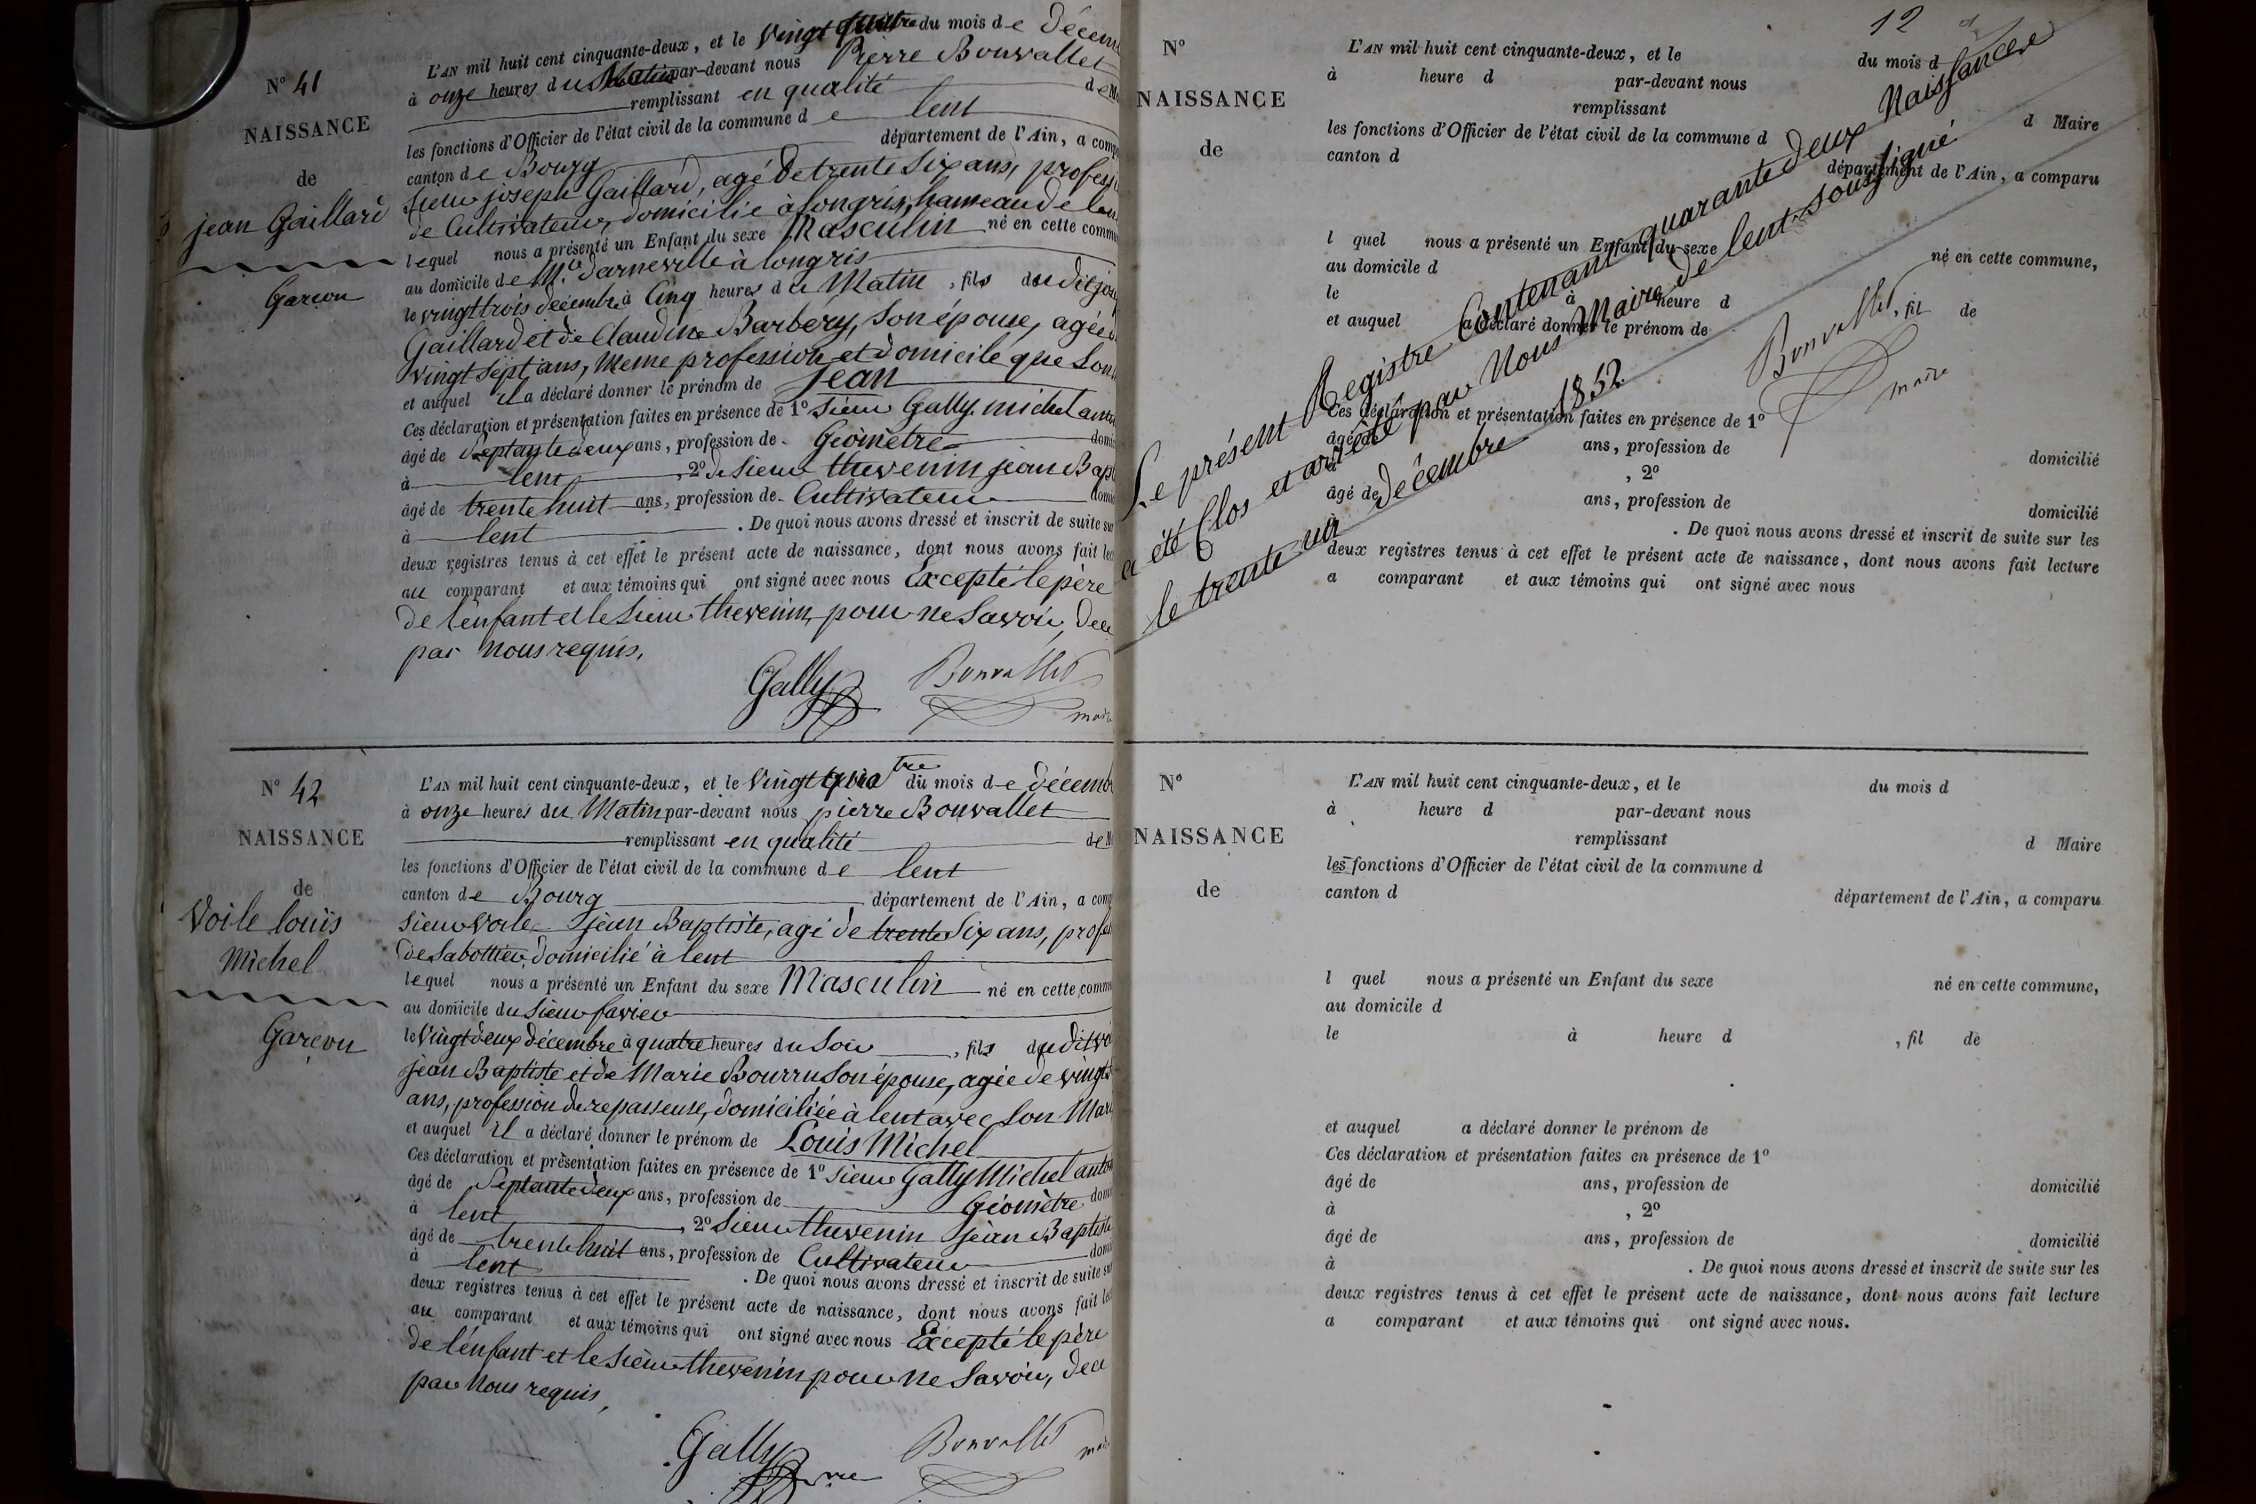 N° 41
NAISSANCE
de
jean Gaillard
Garcon
L'AN mil huit cent cinquante-deux, et le vingt quatre du mois de décem
à onze heures du Matin par-devant nous Pierre Bonvallet
remplissant en qualité de M
les fonctions d'Officier de l'état civil de la commune de lent
canton de Bourg département de l'Ain, a comp
Sieur joseph Gaillard, agé de trente Six ans, profess
de Cultivateur, domicilié à longris, hameau de len
lequel nous a présenté un Enfant du sexe Masculin né en cette commu
au domicile de Mr. darneville à longris
le vingt trois décembre à Cinq heures du Matin, fils du dit jo
Gaillard et de Claudine Barbery, Son épouse, agée d
vingt Sept ans, Meme profession et domicile que Son
et auquel il a déclaré donner le prénom de Jean
Ces déclaration et présentation faites en présence de 1° Sieur Gally michel
âgé de Septante deux ans, profession de Géomètre domi
à lent, 2° de Sieur thevenin jean Bapt
âgé de trente huit ans, profession de Cultivateur domi
à lent. De quoi nous avons dressé et inscrit de suite su
deux registres tenus à cet effet le présent acte de naissance, dont nous avons fait lec
au comparant et aux témoins qui ont signé avec nous Excepté le père
de l'enfant et le Sieur thevenin, pour ne Savoir, de ce
par Nous requis.
Gally Bonvallet
maire
N° 42
NAISSANCE
de
Voile louis
Michel
Garcon
L'AN mil huit cent cinquante-deux, et le vingt quatre du mois de décemb
à onze heures du Matin par-devant nous pierre Bonvallet
remplissant en qualité de M
les fonctions d'Officier de l'état civil de la commune de lent
canton de Bourg département de l'Ain, a comp
Sieur Voile jean Baptiste, agé de trente Six ans, profes
de Sabottier, domicilié à lent
lequel nous a présenté un Enfant du sexe Masculin né en cette commu
au domicile du Sieur favier
le vingt deux décembre à quatre heures du Soir, fils du dit vo
jean Baptiste et de Marie Bourru Son épouse, agée de vingt
ans, profession de repasseuse, domiciliée à lent avec Son Mari
et auquel il a déclaré donner le prénom de Louis Michel
Ces déclaration et présentation faites en présence de 1° Sieur Gally Michel anto
âgé de Septante deux ans, profession de Géomètre domi
à lent, 2° Sieur thevenin jean Baptiste
âgé de trente huit ans, profession de Cultivateur domi
à lent. De quoi nous avons dressé et inscrit de suite su
deux registres tenus à cet effet le présent acte de naissance, dont nous avons fait lec
au comparant et aux témoins qui ont signé avec nous Excepté le père
de l'enfant et le Sieur thevenin pour ne Savoir, de ce
par Nous requis,
Gally Bonvallet
12
N°
NAISSANCE
de
L'AN mil huit cent cinquante-deux, et le du mois d
à heure d par-devant nous
remplissant d Maire
les fonctions d'Officier de l'état civil de la commune d
canton d département de l'Ain, a comparu
l quel nous a présenté un Enfant du sexe né en cette commune,
au domicile d
le à heure d, fil de
et auquel a déclaré donner le prénom de
Ces déclaration et présentation faites en présence de 1°
âgé de ans, profession de domicilié
à, 2°
âgé de ans, profession de domicilié
à. De quoi nous avons dressé et inscrit de suite sur les
deux registres tenus à cet effet le présent acte de naissance, dont nous avons fait lecture
a comparant et aux témoins qui ont signé avec nous
Le présent Registre Contenant quarante deux Naissances
a été Clos et arrêté par Nous Maire de lent Soussigné
le trente un décembre 1852
Bonvallet
maire
N°
NAISSANCE
de
L'AN mil huit cent cinquante-deux, et le du mois d
à heure d par-devant nous
remplissant d Maire
les fonctions d'Officier de l'état civil de la commune d
canton d département de l'Ain, a comparu
l quel nous a présenté un Enfant du sexe né en cette commune,
au domicile d
le à heure d, fil de
et auquel a déclaré donner le prénom de
Ces déclaration et présentation faites en présence de 1°
âgé de ans, profession de domicilié
à, 2°
âgé de ans, profession de domicilié
à. De quoi nous avons dressé et inscrit de suite sur les
deux registres tenus à cet effet le présent acte de naissance, dont nous avons fait lecture
a comparant et aux témoins qui ont signé avec nous.